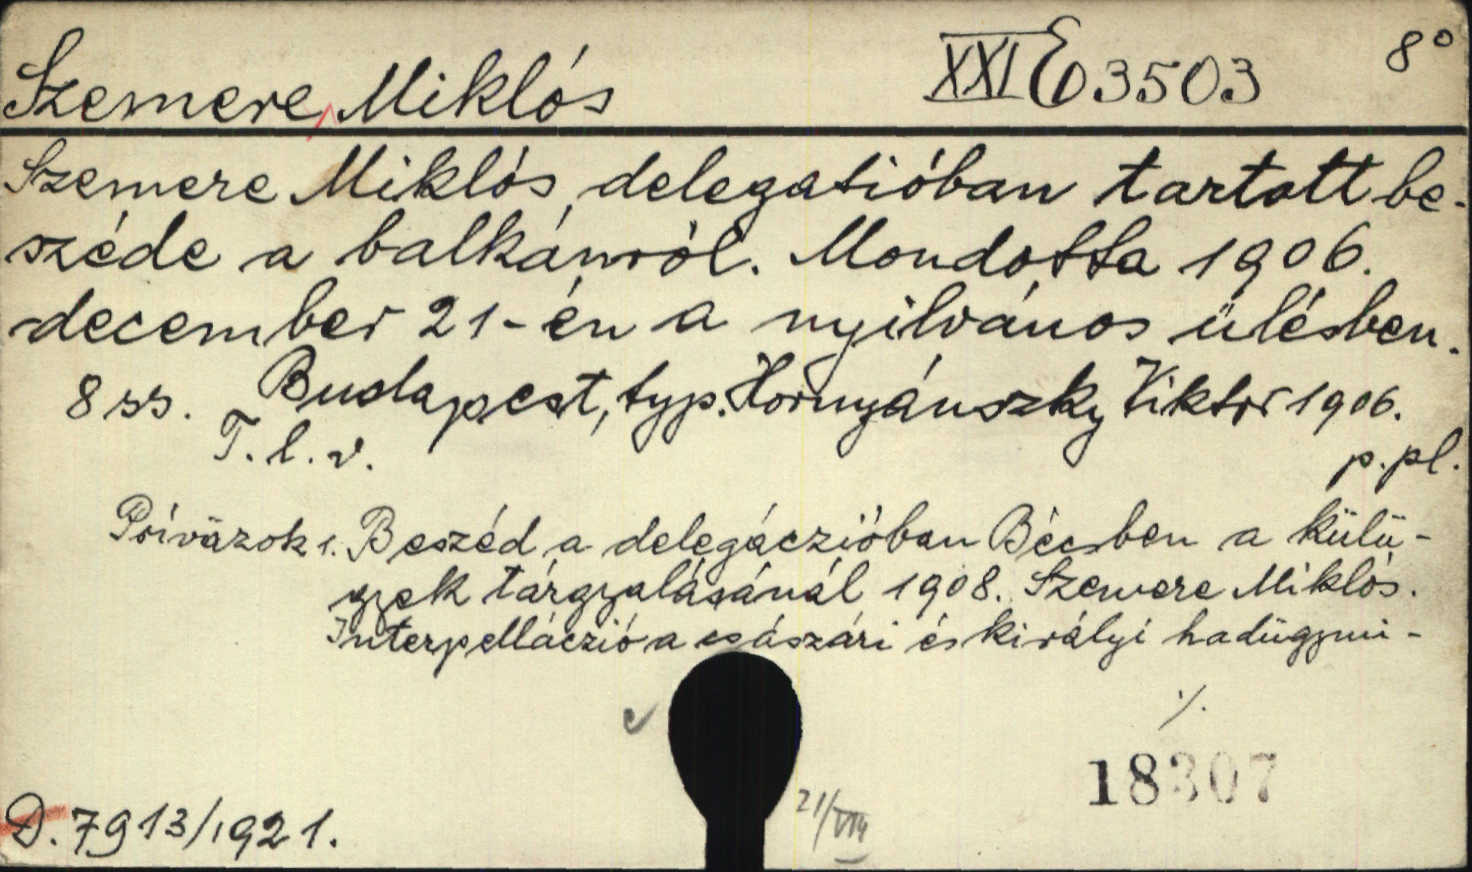 Szemere, Miklós XXI E 3503 8°
Szemere Miklós, delegatióban tartott be-
széde a balkánról. Mondotta 1906.
december 21-én a nyilvános ülésben.
8 ss. Budapest, typ. Hornyánszky Viktor 1906.
T. l. v. p. pl.
1. Beszéd a delegáczióban Bécsben a külü-
gyek tárgyalásánál 1908. Szemere Miklós.
Interpelláczió a császári és királyi hadügymi-
./.
18307
D. 7913/1921. 21/VIII